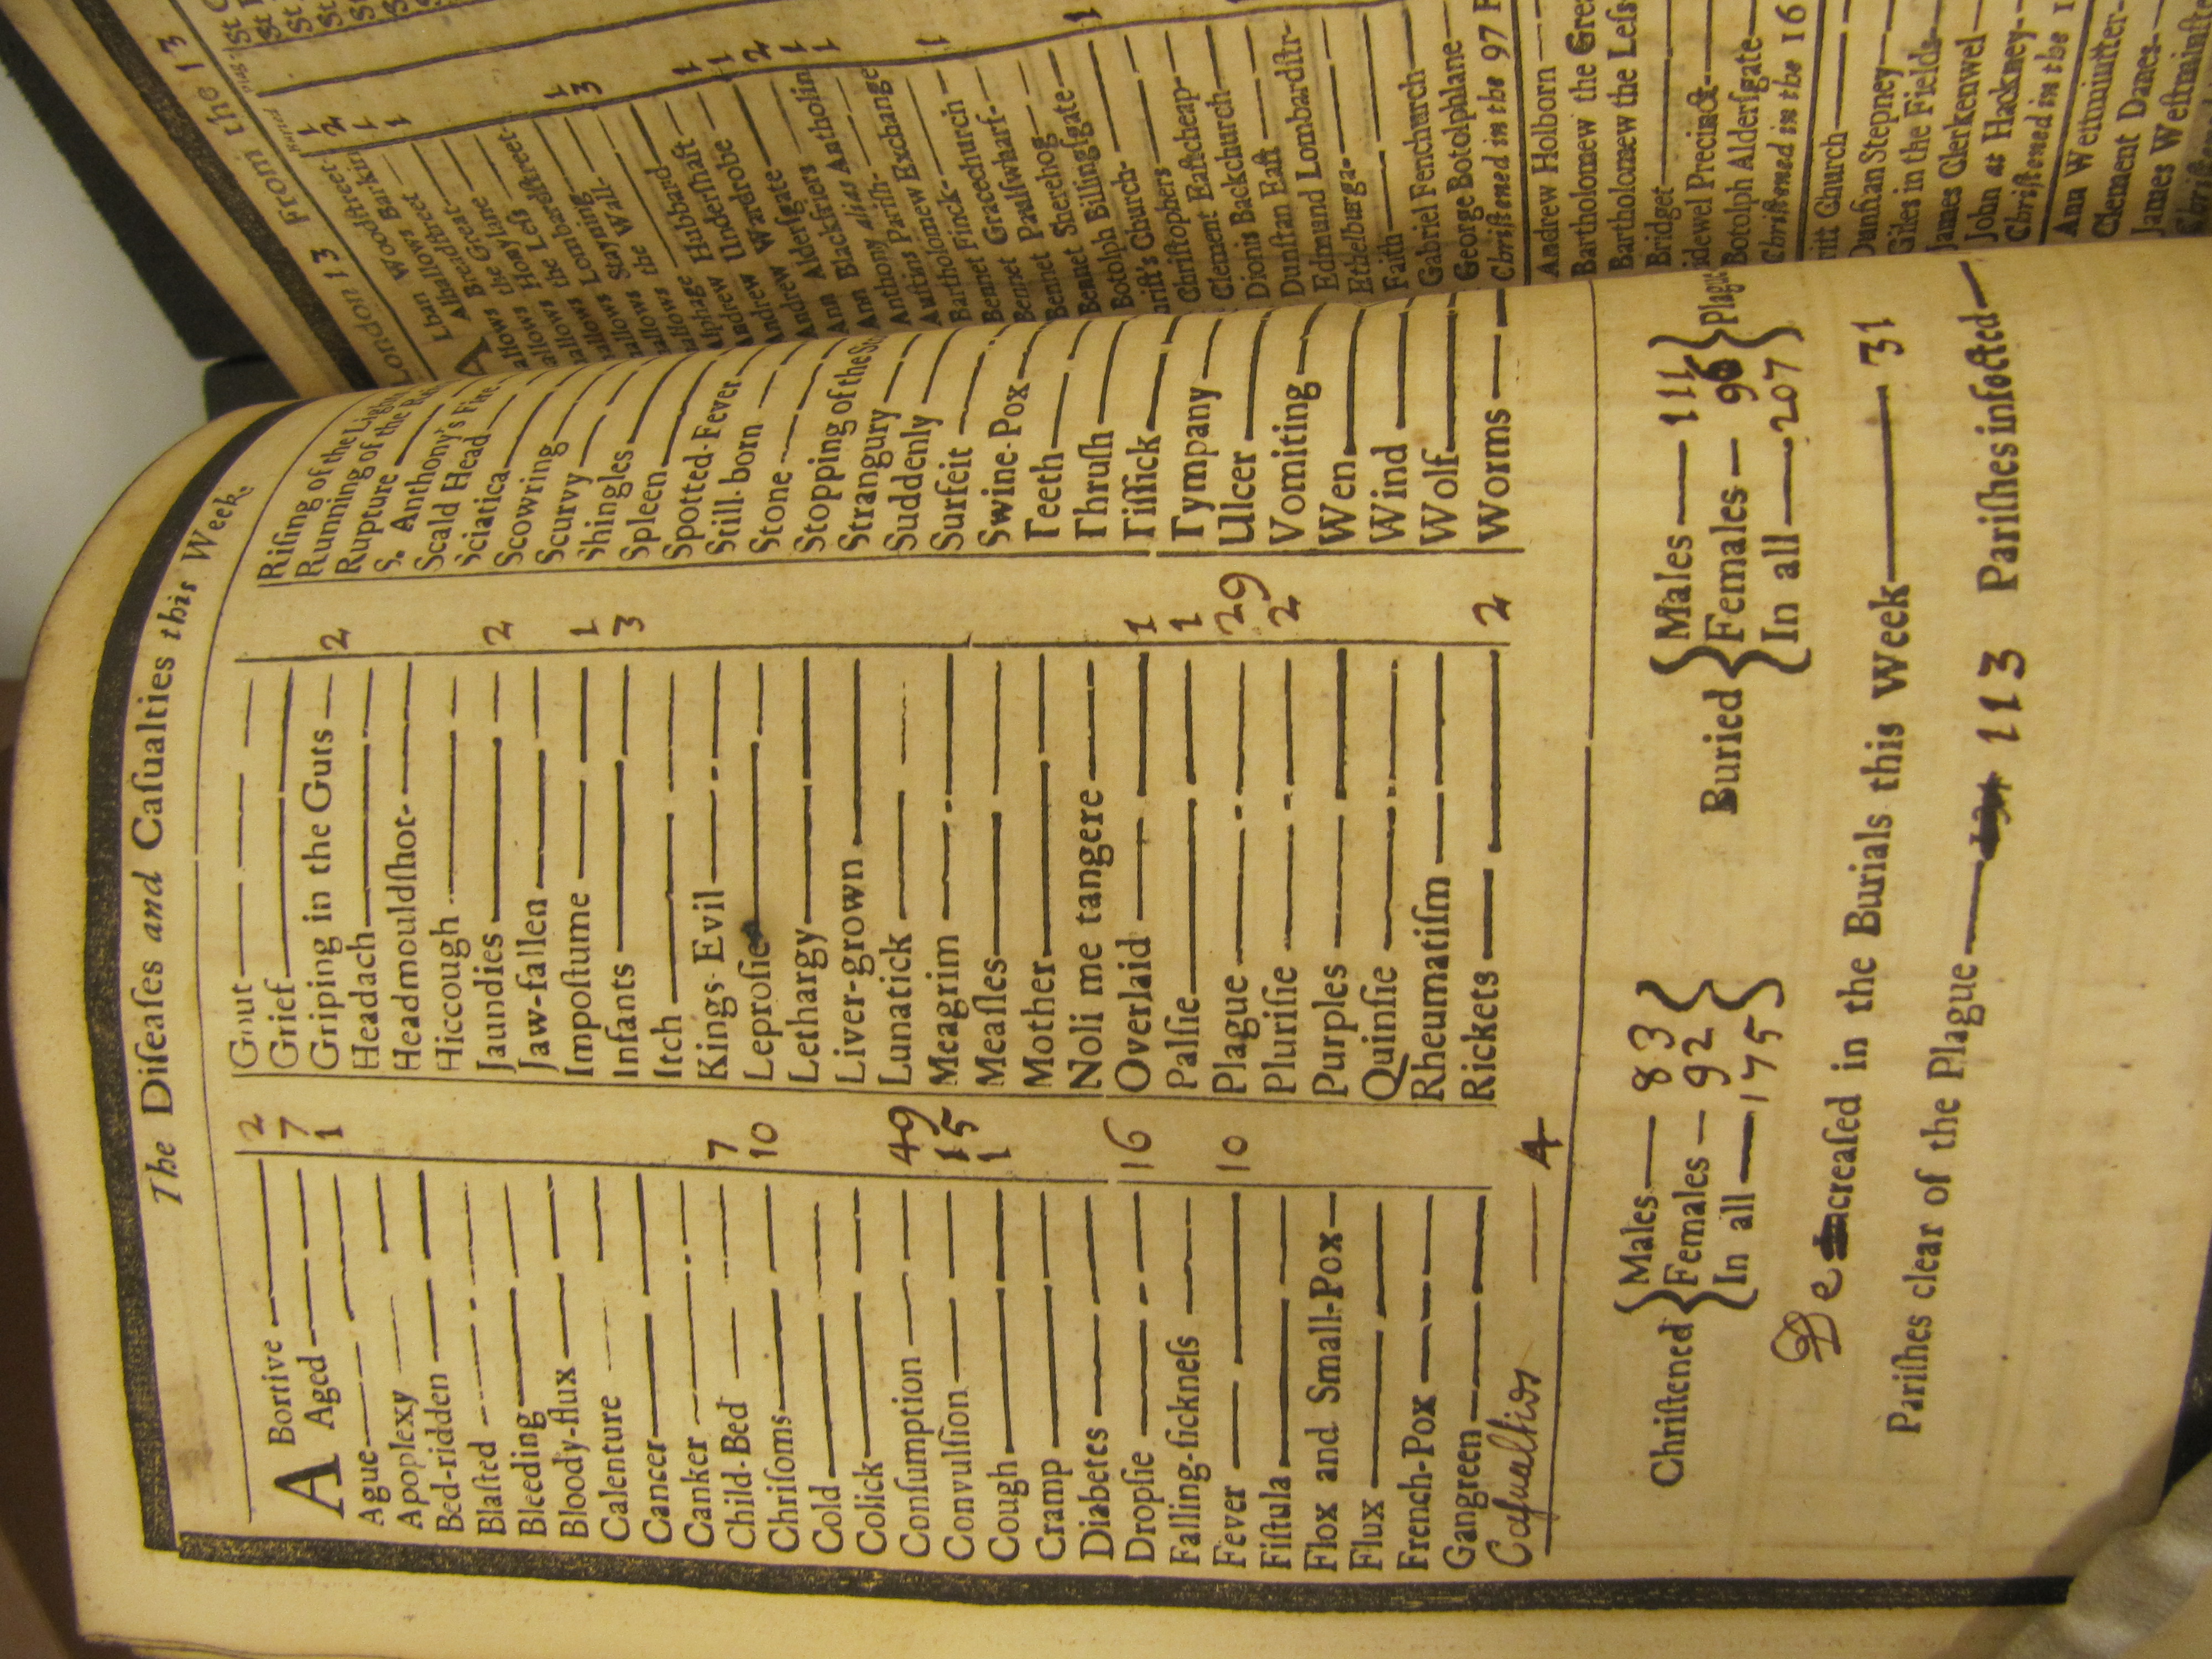 The Diſeaſes and Caſualties this Week.
A Bortive 2
Aged 7
Ague 1
Apoplexy
Bed-ridden
Blaſted
Bleeding
Bloody-flux
Calenture
Cancer
Canker
Child-Bed 7
Chriſoms 10
Cold
Colick
Conſumption 49
Convulſion 15
Cough 1
Cramp
Diabetes
Dropſie 16
Falling-ſickneſs
Fever 10
Fiſtula
Flox and Small-Pox
Flux
French-Pox
Gangreen
Caſualties 4
Gout
Grief
Griping in the Guts 2
Headach
Headmouldſhot
Hiccough
Jaundies 2
Jaw-fallen
Impoſtume 1
Infants 3
Itch
Kings Evil
Leproſie
Lethargy
Liver-grown
Lunatick
Meagrim
Meaſles
Mother
Noli me tangere
Overlaid 1
Palſie 1
Plague 29
Pluriſie 2
Purples
Quinſie
Rheumatiſm
Rickets 2
Riſing of the Lights
Running of the
Rupture
S. Anthony's Fire
Scald Head
Sciatica
Scowring
Scurvy
Shingles
Spleen
Spotted-Fever
Still-born
Stone
Stopping of the
Strangury
Suddenly
Surfeit
Swine-Pox
Teeth
Thruſh
Tiſſick
Tympany
Ulcer
Vomiting
Wen
Wind
Wolf
Worms
Chriſtened Males 83
Females 92
In all 175
Buried Males 111
Females 96
In all 207
Plague
Decreaſed in the Burials this Week 31
Pariſhes clear of the Plague 113 Pariſhes infected
London 13 From the 13
Buried
Plag.
Alban Woodſtreet 1
Alhallows Barkin 2
Alhallows Breadſtreet 1
Alhallows the Great 1
Alhallows Honylane
Alhallows the Leſs
Alhallows Lombardſtreet
Alhallows Stayning 1
Alhallows the Wall 3
Alphage
Andrew Hubbard
Andrew Underſhaft 1
Andrew Wardrobe 1
Ann Alderſgate 2
Ann Blackfriers 1
Anthony alias Antholin 1
Auſtins Pariſh
Bartholomew Exchange
Bennet Finck 1
Bennet Gracechurch
Bennet Paulſwharf
Bennet Sherehog
Botolph Billingſgate
Chriſt's Church 1
Chriſtophers
Clement Eaſtcheap
Dionis Backchurch
Dunſtan Eaſt
Edmund Lombardſtr
Ethelburga
Faith
Gabriel Fenchurch
George Botolphlane
Chriſtened in the 97 P
Andrew Holborn
Bartholomew the Grea
Bartholomew the Leſs
Bridget
idewel Precinct
Botolph Alderſgate
Chriſtened in the 16
Dunſtan Stepney
Giles in the Fields
James Clerkenwel
John at Hackney
Chriſtened in the 1
Clement Danes
James Weſtminſte